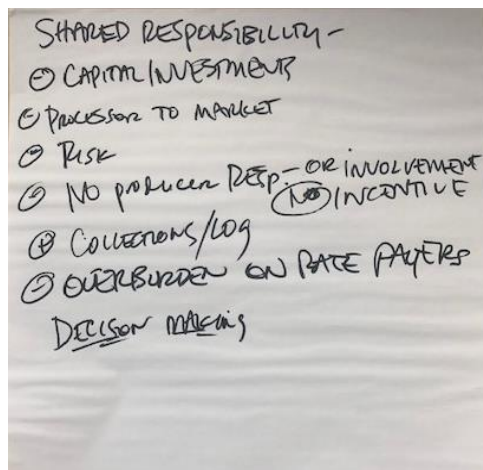 SHARED RESPONSIBILITY -
⊖ CAPITAL INVESTMENTS
⊖ PROCESSOR TO MARKET
⊖ RISK
⊖ NO PRODUCER RESP. - OR INVOLVEMENT
NO INCENTIVE
⊕ COLLECTIONS/LOG
⊖ OVERBURDEN ON RATE PAYERS
DECISON MAKING